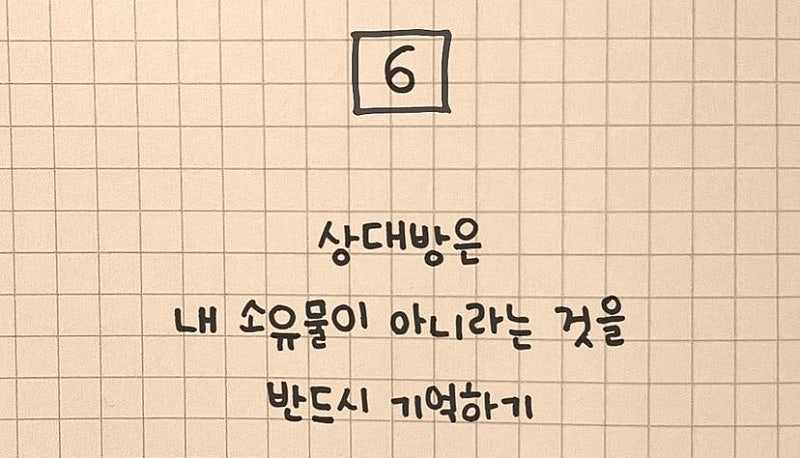 6
상대방은
내 소유물이 아니라는 것을
반드시 기억하기